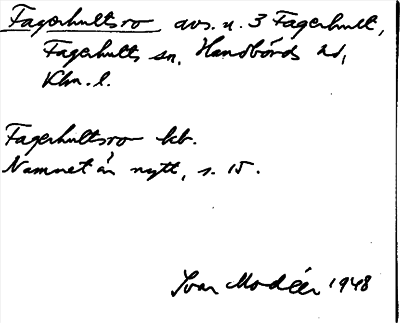 Fagerhultsro avs. u. 3 Fagerhult,
Fagerhults sn, Handbörds hd,
Klm. l.
Fagerhultsro kb.
Namnet är nytt, s. 15.
Ivar Modéer 1948